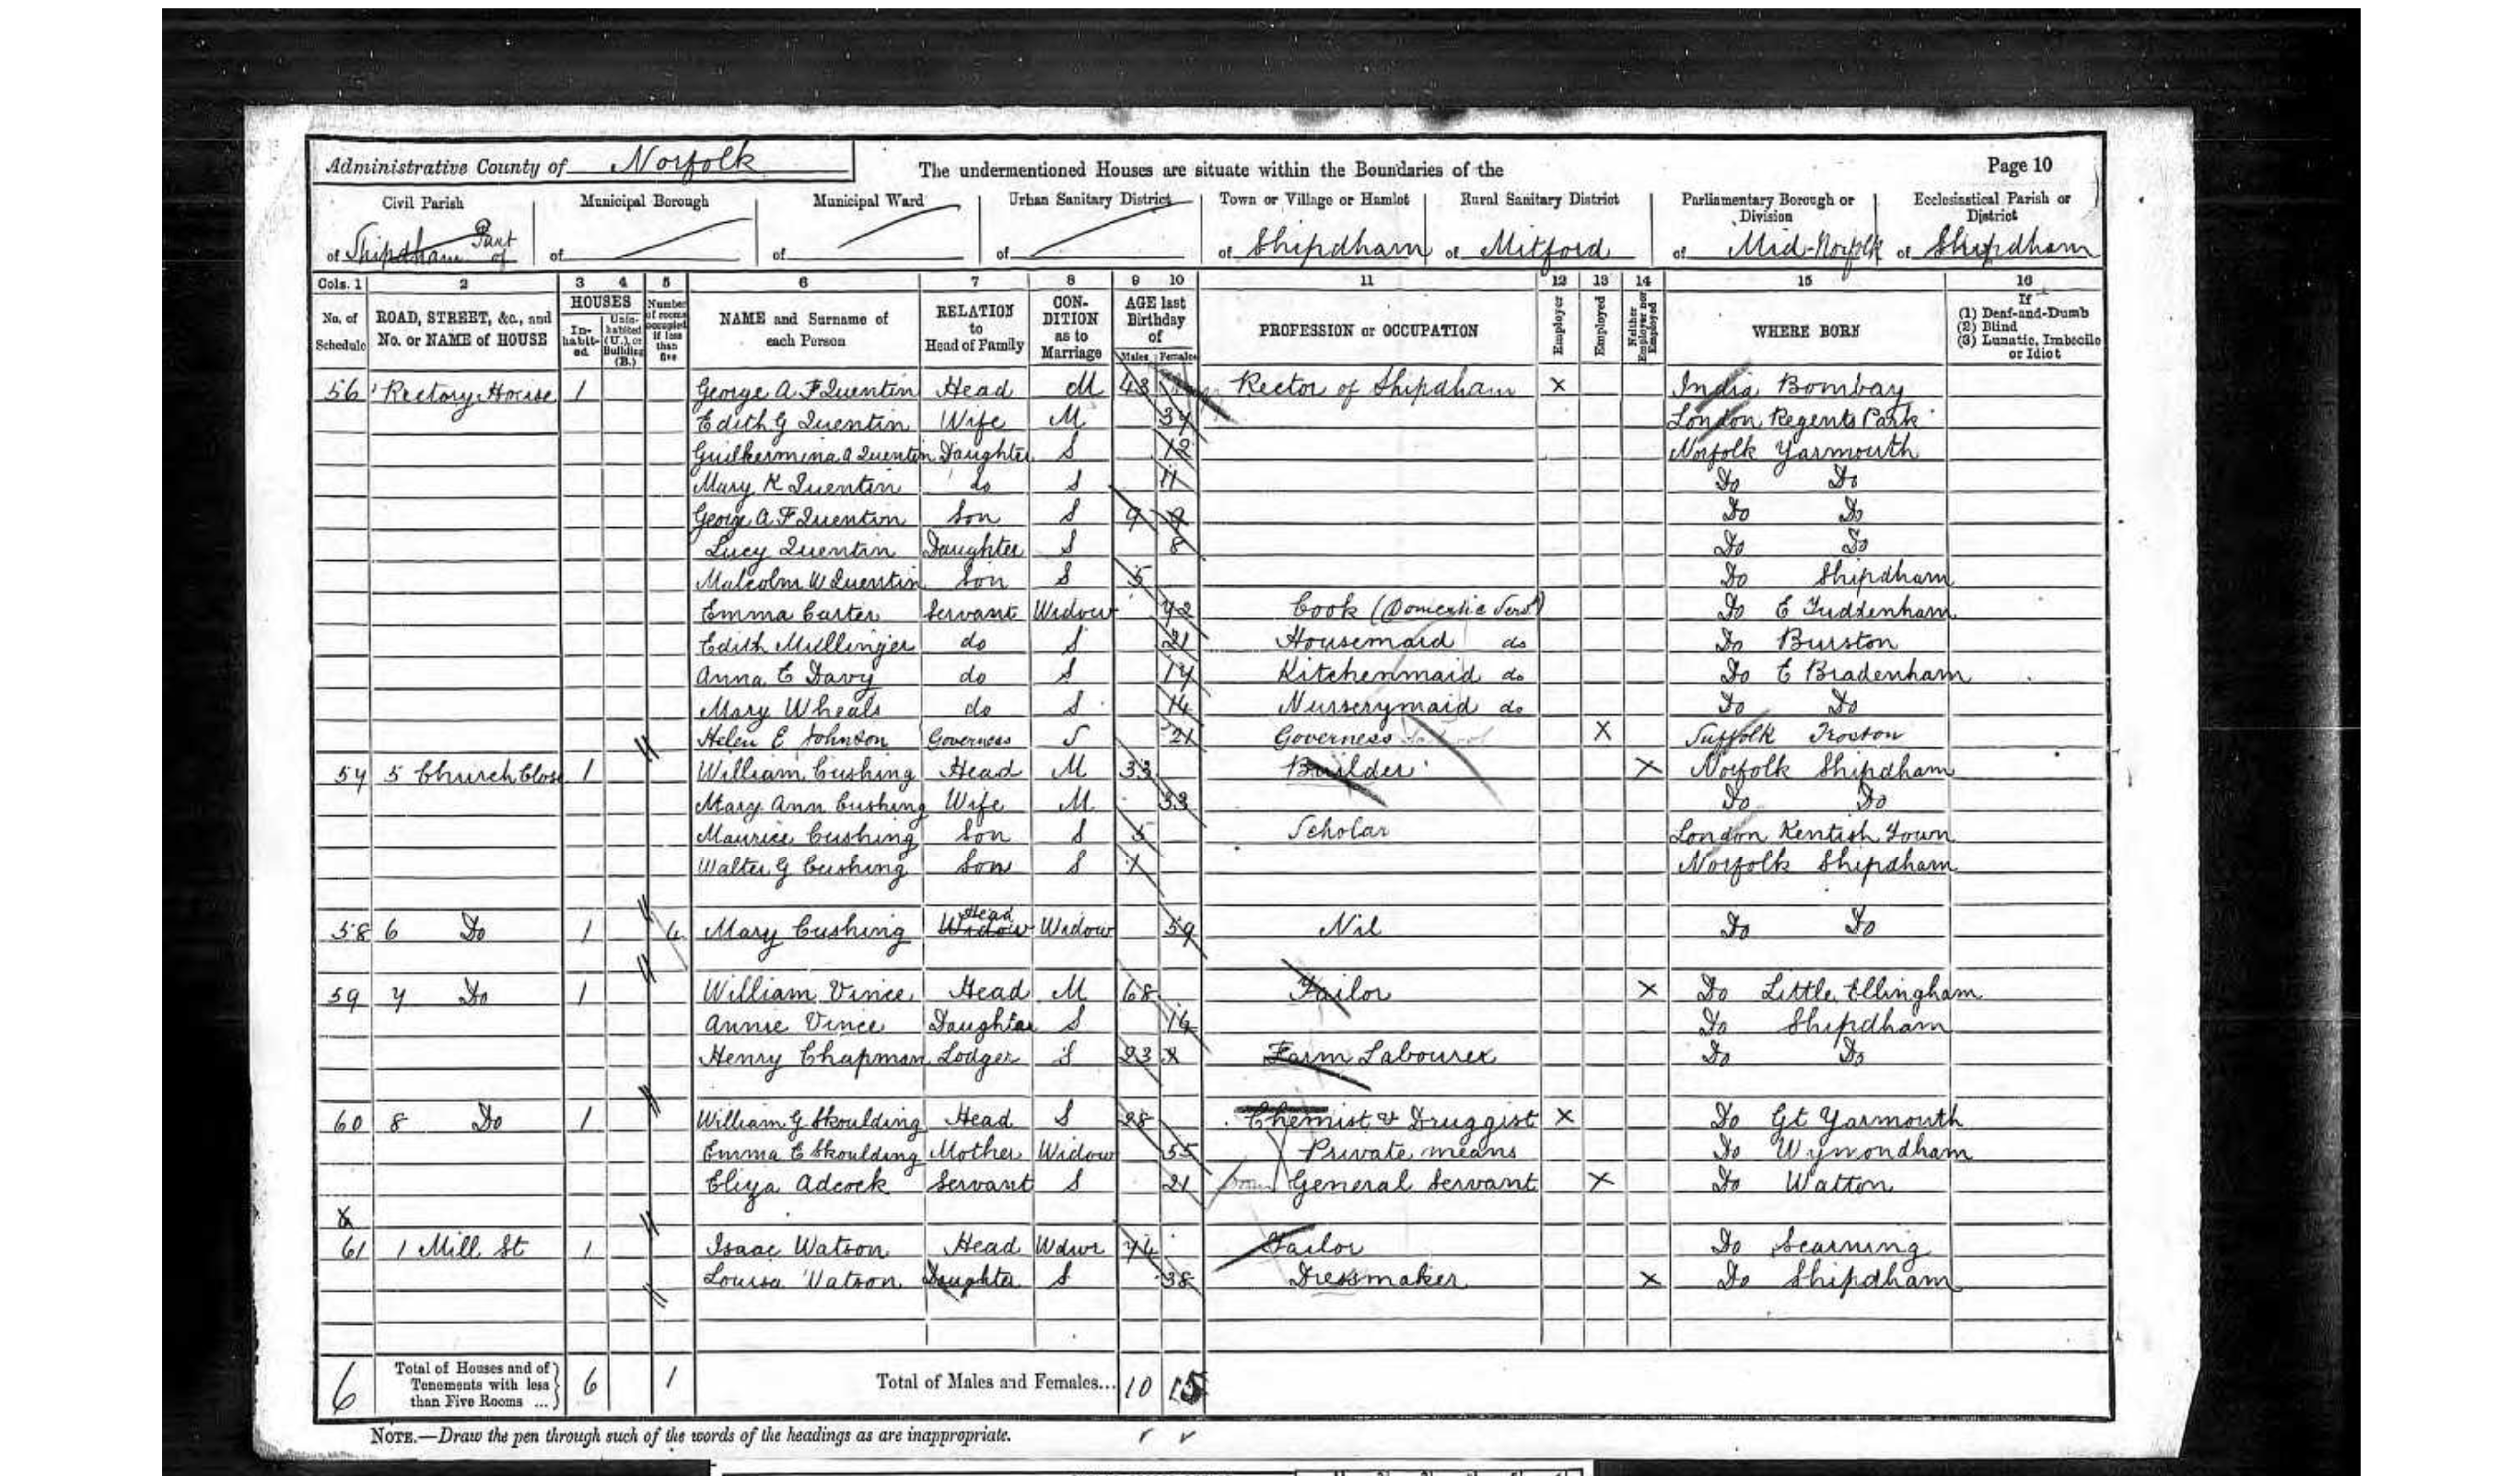 Administrative County of Norfolk The undermentioned Houses are situate within the Boundaries of the Page 10
Civil Parish Municipal Borough Municipal Ward Urban Sanitary District Town or Village or Hamlet Rural Sanitary District Parliamentary Borough or Division Ecclesiastical Parish or District
of Shipdham Part of of of of of Shipdham of Mitford of Mid-Norfolk of Shipdham
Cols. 1 2 3 4 5 6 7 8 9 10 11 12 13 14 15 16
No. of Schedule ROAD, STREET, &c., and No. or NAME of HOUSE HOUSES In-habit-ed Unin-habited (U.), or Building (B.) Number of rooms occupied if less than five NAME and Surname of each Person RELATION to Head of Family CON-DITION as to Marriage AGE last Birthday of Males Females PROFESSION or OCCUPATION Employer Employed Neither Employer nor Employed WHERE BORN If (1) Deaf-and-Dumb (2) Blind (3) Lunatic, Imbecile or Idiot
56 Rectory House 1 George A F Quentin Head M 43 Rector of Shipdham X India Bombay
Edith G Quentin Wife M 37 London Regents Park
Guilhermina A Quentin Daughter S 12 Norfolk Yarmouth
Mary K Quentin do S 11 Do Do
George A F Quentin Son S 9 9 Do Do
Lucy Quentin Daughter S 8 Do Do
Malcolm W Quentin Son S 5 Do Shipdham
Emma Carter Servant Widow 72 Cook (Domestic Servt) Do E Tuddenham
Edith Mullinger do S 21 Housemaid do Do Burston
Anna E Davy do S 17 Kitchenmaid do Do E Bradenham
Mary Wheals do S 14 Nurserymaid do Do Do
Helen E Johnson Governess S 21 Governess School X Suffolk Troston
57 5 Church Close 1 William Cushing Head M 33 Builder X Norfolk Shipdham
Mary Ann Cushing Wife M 33 Do Do
Maurice Cushing Son S 5 Scholar London Kentish Town
Walter G Cushing Son S 1 Norfolk Shipdham
58 6 Do 1 4 Mary Cushing Widow Head Widow 59 Nil Do Do
59 7 Do 1 William Vince Head M 68 Tailor X Do Little Ellingham
Annie Vince Daughter S 14 Do Shipdham
Henry Chapman Lodger S 23 X Farm Labourer Do Do
60 8 Do 1 William G Skoulding Head S 28 Chemist & Druggist X Do Gt Yarmouth
Emma E Skoulding Mother Widow 55 Private means Do Wymondham
Eliza Adcock Servant S 21 Dom General Servant X Do Watton
61 1 Mill St 1 Isaac Watson Head Wdwr 74 Tailor Do Scarning
Louisa Watson Daughter S 38 Dressmaker X Do Shipdham
6 Total of Houses and of Tenements with less than Five Rooms ... 6 1 Total of Males and Females... 10 15
NOTE.—Draw the pen through such of the words of the headings as are inappropriate.